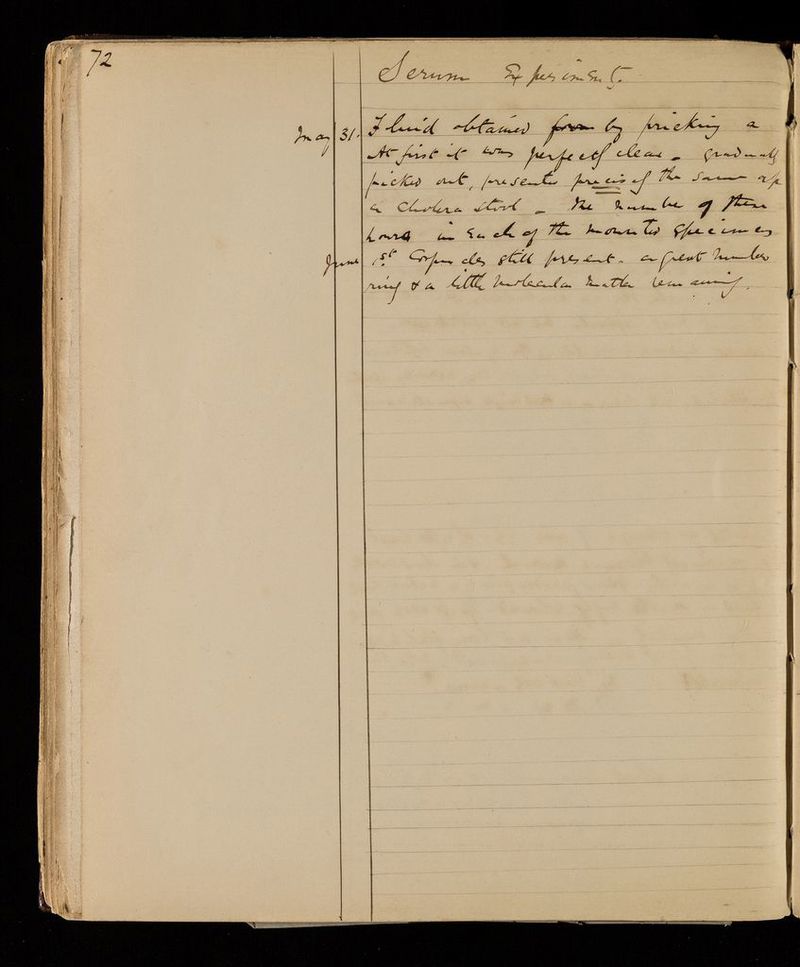 72
Serum Experiments.
May 31. Fluid obtained from by pricking a
At first it was perfectly clear - gradually
picked out, presented precisely the same ap
a Cholera stool - The number of these
hours in each of the mounted specimens
June 1st Corpuscles still present - a great number
ring & a little molecular matter remaining.